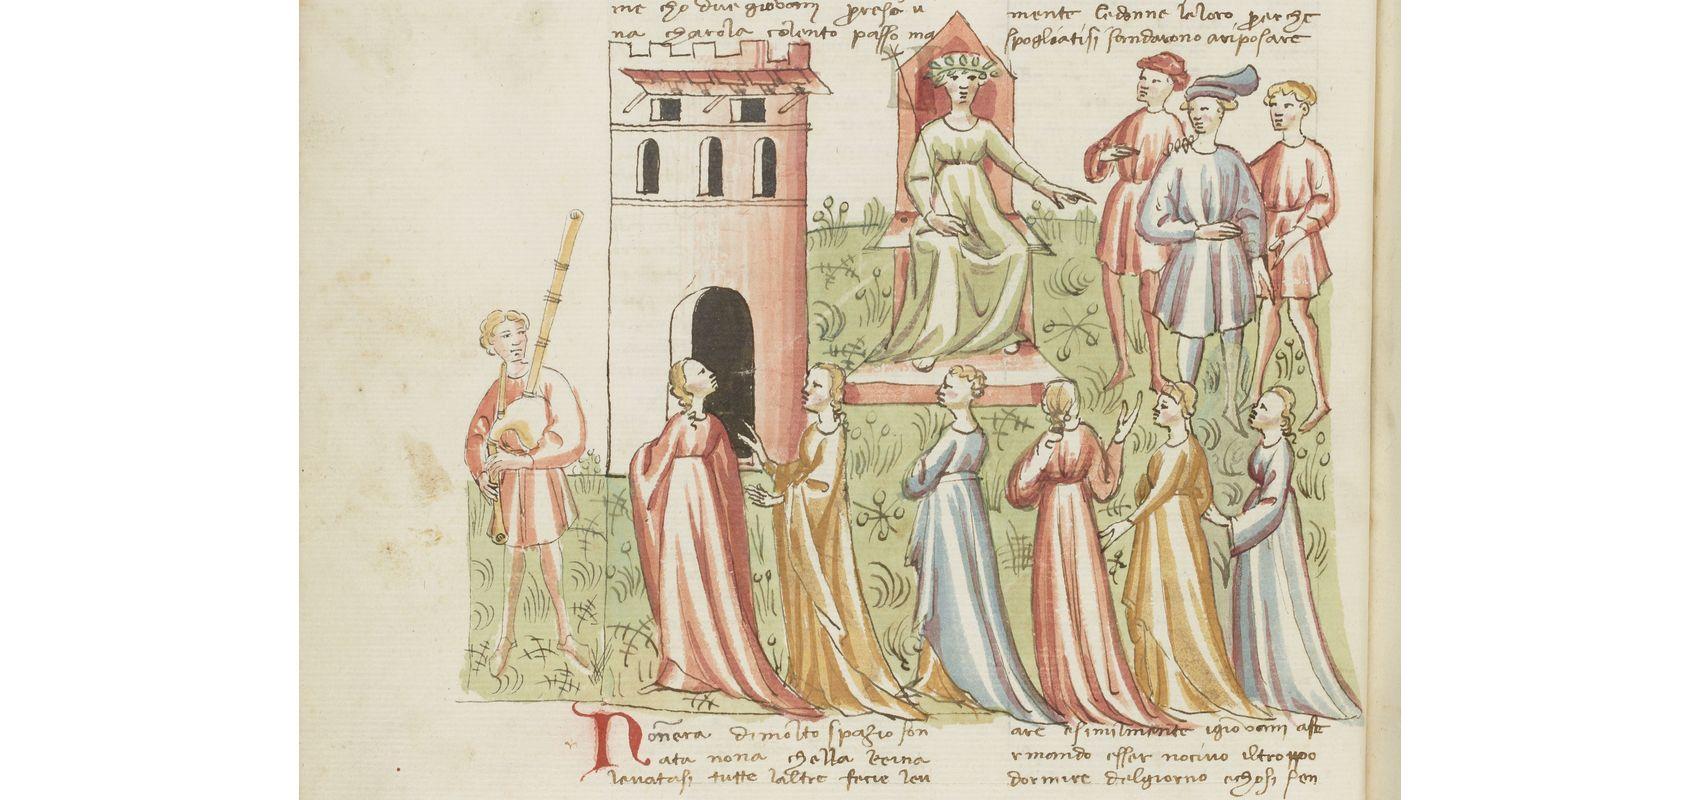 me cho due giovani presa u
na charola colento passo ma
mente le donne le loro per che
spogliatisi sandarono ariposare
Nōnera dimolto spazio son
ata nona chella Reina
levatasi tutte laltre fecie lev
are esimilmente igiovani afe
rmando esser nocivo iltroppo
dormire delgiorno echosi sen